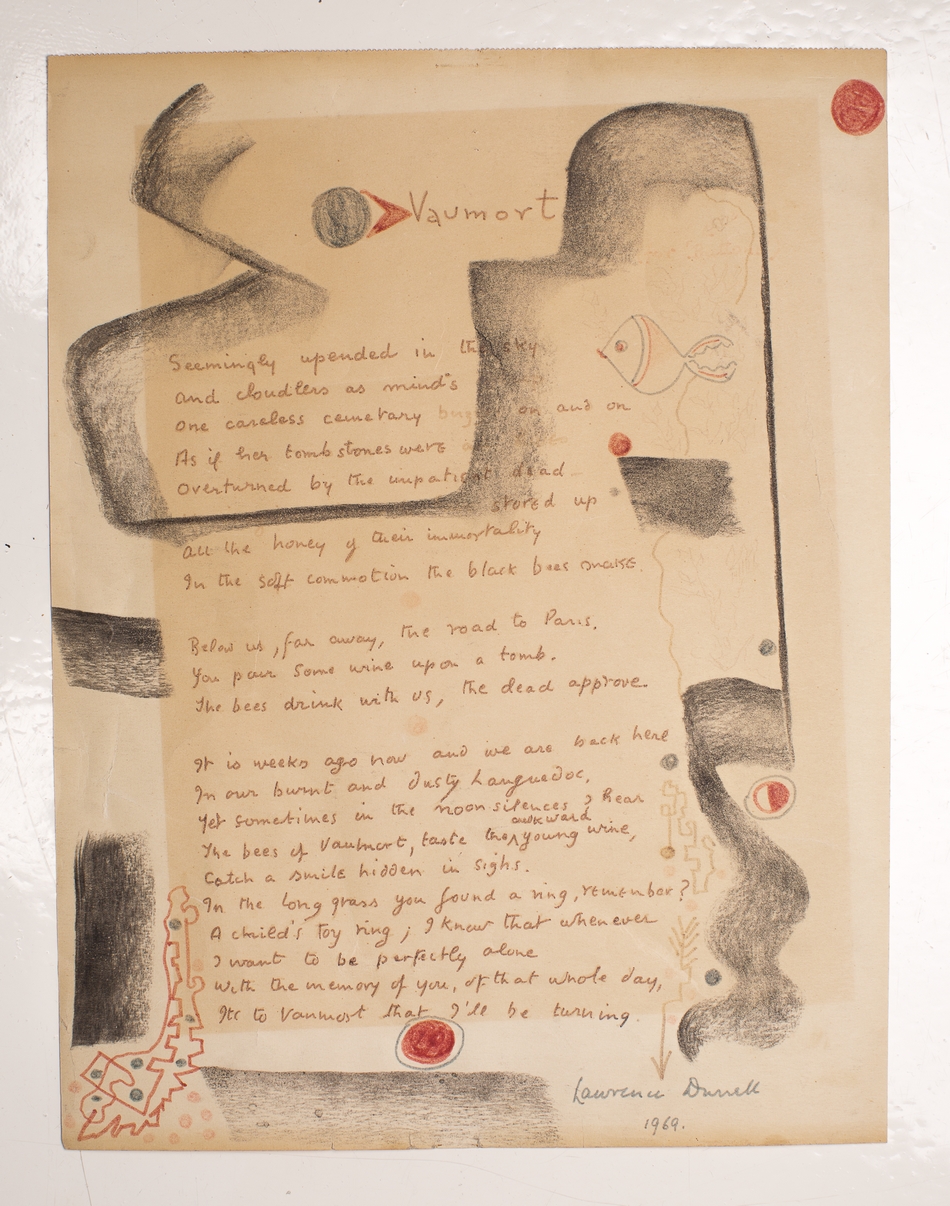 Vaumort
Seemingly upended in the sky
and cloudless as mind's
One careless cemetary on and on
As if her tombstones were
Overturned by the impatient dead
stored up
All the honey of their immortality
In the soft commotion the black bees make.
Below us, far away, the road to Paris.
You pour some wine upon a tomb.
The bees drink with us, the dead approve.
It is weeks ago now and we are back here
In our burnt and dusty Languedoc,
Yet sometimes in the noon silences I hear
awkward
The bees of Vaumort, taste the young wine,
Catch a smile hidden in sighs.
In the long grass you found a ring, remember?
A child's toy ring; I know that whenever
I want to be perfectly alone
With the memory of you, of that whole day,
Its to Vaumort that I'll be turning.
Lawrence Durrell
1969.